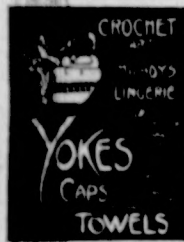 CROCHET
LINGERIE
YOKES
CAPS
TOWELS